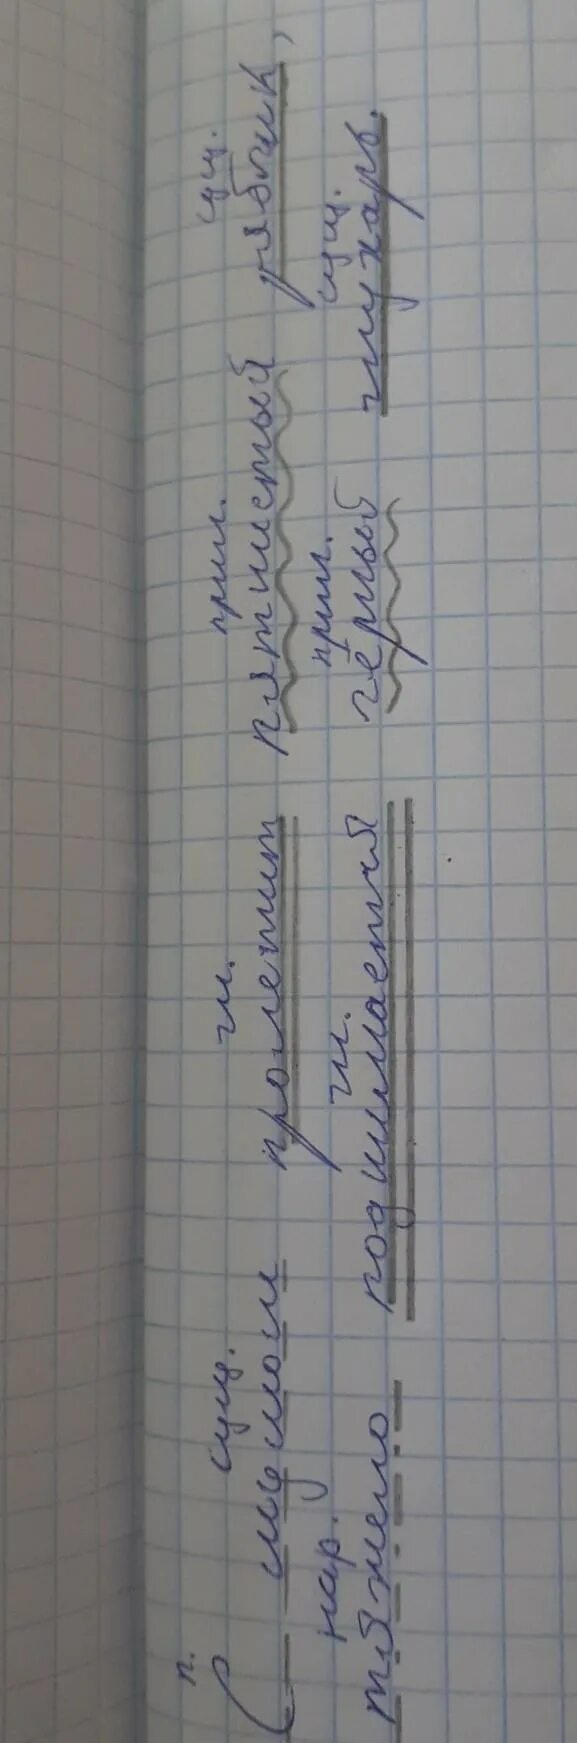 п. сущ. гл. прил. сущ.
С шумом пролетит пятнистый рябчик,
нар. гл. прил. сущ.
тяжело поднимается чёрный глухарь.